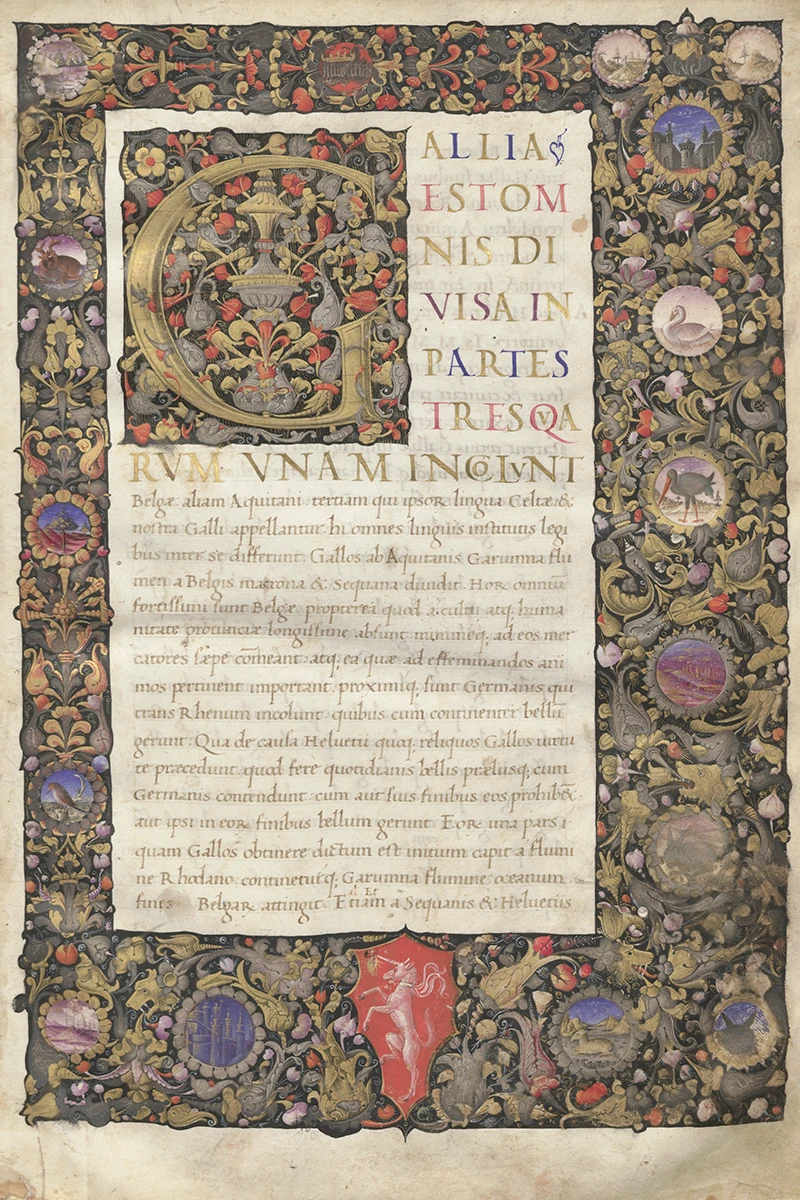 GALLIA
EST OM
NIS DI
VISA IN
PARTES
TRES QVA
RVM VNAM INCOLVNT
Belgæ aliam Aquitani tertiam qui ipsoꝝ lingua Celtæ &
nostra Galli appellantur. hi omnes linguis institutis legi
bus inter se differunt. Gallos ab Aquitanis Garumna flu
men a Belgis matrona & Sequana diuidit. Hoꝝ omniū
fortissimi sunt Belgæ propterea quod a cultu atq; huma
nitate prouinciæ longissime absunt minimeq; ad eos mer
catores sæpe cōmeant: atq; ea quæ ad effeminandos ani
mos pertinent important. proximiq; sunt Germanis qui
trans Rhenum incolunt: quibus cum continenter bellū
gerunt. Qua de causa Heluetii quoq; reliquos Gallos uirtu
te præcedunt quod fere quotidianis bellis prælusq; cum
Germanis contendunt: cum aut suis finibus eos prohibēt:
aut ipsi in eoꝝ finibus bellum gerunt. Eoꝝ una pars i
quam Gallos obtinere dictum est initium capit a flumi
ne Rhodano. continetuꝝq; Garumna flumine oceanum
al. Et
fines Belgaꝝ attingit. Etiam a Sequanis & Heluetiis